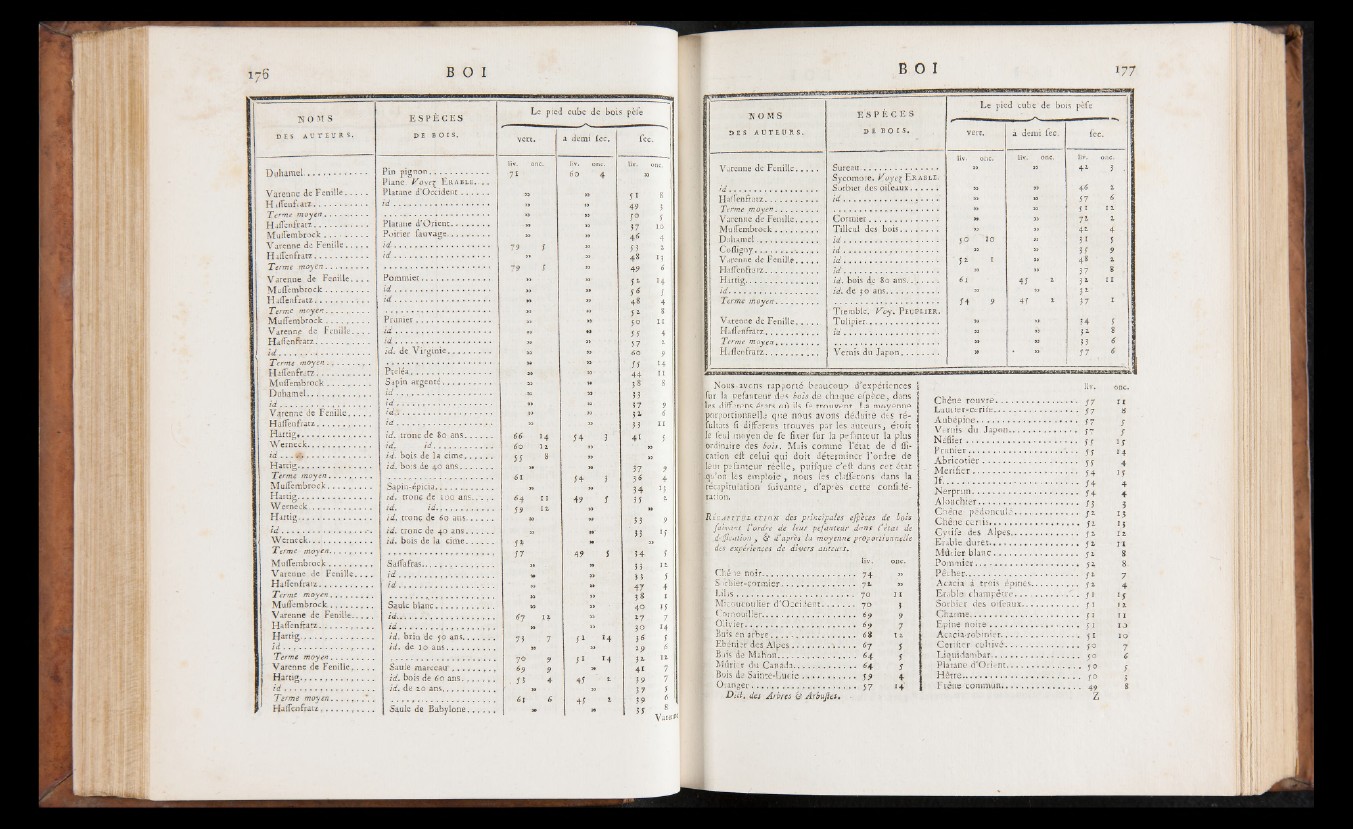 176 BOI
NOMS
DES AUTEURS.
ESPÈCES
DE BOIS.
Le pied cube de bois pèse
vert. à demi sec. sec.
liv. onc. liv. onc. liv. onc.
Duhamel Pin pignon 71 60 4 »
Plane. Voyez ERABLE.
Varenne de Fenille Platane d'Occident » » 51 8
Hassenfratz id » » 49 3
Terme moyen » » 50 5
Hassenfratz Platane d'Orient » » 37 10
Mussembrock Poirier sauvage » » 46 4
Varenne de Fenille id 79 5 » 53 2
Hassenfratz id » » 48 13
Terme moyen 79 5 » 49 6
Varenne de Fenille Pommier » » 52 14
Mussembrock id » » 56 5
Hassenfratz id » » 48 4
Terme moyen » » 52 8
Mussembrock Prunier » » 50 15
Varenne de Fenille id » » 55 4
Hassenfratz id » » 57 2
id id. de Virginie » » 60 9
Terme moyen » » 55 14
Hassenfratz Ptéléa » » 44 11
Mussembrock Sapin argenté » » 38 8
Duhamel id » » 33
id id » » 37 9
Varenne de Fenille id » » 32 6
Hassenfratz id » » 33 11
Hartig id. tronc de 80 ans 66 14 54 3 41 5
Werneck id. id 60 12 » »
id id. bois de la cime 55 8 » »
Hartig id. bois de 40 ans » » 37 9
Terme moyen 61 54 3 36 4
Mussembrock Sapin-épicia » » 34 13
Hartig id. tronc de 100 ans 64 11 49 5 35 2
Werneck id. id 59 12 » »
Hartig id. tronc de 60 ans » » 33 9
id id. tronc de 40 ans » » 33 15
Werneck id. bois de la cime 52 » »
Terme moyen 57 49 5 34 5
Mussembrock Sassafras » » 33 12
Varenne de Fenille id » » 33 5
Hassenfratz id » » 47 4
Terme moyen » » 38 1
Mussembrock Saule blanc » » 40 15
Varenne de Fenille id 67 12 » 27 7
Hassenfratz id » » 30 14
Hartig id. brin de 50 ans 73 7 52 14 36 5
id id. de 10 ans 29 6
Terme moyen 70 9 51 14 32 12
Varenne de Fenille Saule marceau 69 9 » 41 7
Hartig id. bois de 60 ans 53 4 45 2 39 7
id id. de 20 ans » » 37 5
Terme moyen 61 6 45 2 39 6
Hassenfratz Saule de Babylone » » 35 8
BOI 177
NOMS
DES AUTEURS.
ESPÈCES
DE BOIS.
Le pied cube de bois pèse
vert. à demi sec. sec.
liv. onc. liv. onc. liv. onc.
Varenne de Fenille Sureau » » 42 3
Sycomore. Voyez ERABLE.
id Sorbier des oiseaux » » 46 2
Hassenfratz id » » 57 6
Terme moyen » » 51 12
Varenne de Fenille Cormier » » 72 2
Mussembrock Tilleul des bois » » 42 4
Duhamel id 50 10 » 31 5
Cossigny id » » 35 9
Varenne de Fenille id 52 1 » 48 2
Hassenfratz id » » 37 8
Hartig id. bois de 80 ans 61 45 2 32 11
id id. de 30 ans » 32
Terme moyen 54 9 45 2 37 1
Tremble. Voy. PEUPLIER.
Varenne de Fenille Tulipier » » 34 5
Hassenfratz id » » 32 8
Terme moyen » » 33 6
Hassenfratz Vernis du Japon » » 57 6
Nous avons rapporté beaucoup d'expériences
sur la pesanteur des bois de chaque espèce, dans
les différens états où ils se trouvent. La moyenne
proportionnelle que nous avons déduite des résultats
si différens trouvés par les auteurs, étoit
le seul moyen de se fixer sur la pesanteur la plus
ordinaire des bois. Mais comme l'état de dessi-
cation est celui qui doit déterminer l'ordre de
leur pesanteur réelle, puisque c'est dans cet état
qu'on les emploie, nous les classerons dans la
récapitulation suivante, d'après cette considé-
ration.
RÉCAPITULATION des principales espèces de bois
suivant l'ordre de leur pesanteur dans l'état de
dessication, & d'après la moyenne proportionnelle
des expériences de divers auteurs.
liv. onc.
Chêne noir 74 »
Sorbier-cormier 72 »
Lilas 70 11
Micocoulier d'Occident 70 3
Cornouiller 69 9
Olivier 69 7
Buis en arbre 68 12
Ebénier des Alpes 67 5
Buis de Mahon 64 5
Mûrier du Canada 64 5
Bois de Sainte-Lucie 59 4
Oranger 57 14
Dict. des Arbres & Arbustes.
liv. onc.
Chêne rouvre 57 11
Laurier-cerise 57 8
Aubépine 57 5
Vernis du Japon 57 5
Néflier 55 15
Prunier 55 14
Abricotier 55 4
Merisier 54 15
If 54 4
Nerprun 54 4
Alouchier 53 3
Chêne pédonculé 52 13
Chêne cerris 52 15
Cytise des Alpes 52 12
Erable duret 52 11
Mûrier blanc 52 8
Pommier 52 8
Pêcher 52 7
Acacia à trois épines 52 4
Erable champêtre 51 15
Sorbier des oiseaux 51 12
Charme 51 11
Epine noire 51 10
Acacia-robinier 51 10
Cerisier cultivé 50 7
Liquidambar 50 6
Platane d'Orient 50 5
Hêtre 50 3
Frêne commun 49 8
Z